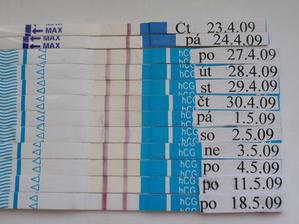 MAX Čt 23.4.09
MAX pá 24.4.09
MAX
hCG po 27.4.09
út 28.4.09
hCG st 29.4.09
hCG čt 30.4.09
pá 1.5.09
so 2.5.09
hCG ne 3.5.09
hCG po 4.5.09
hCG po 11.5.09
hCG po 18.5.09